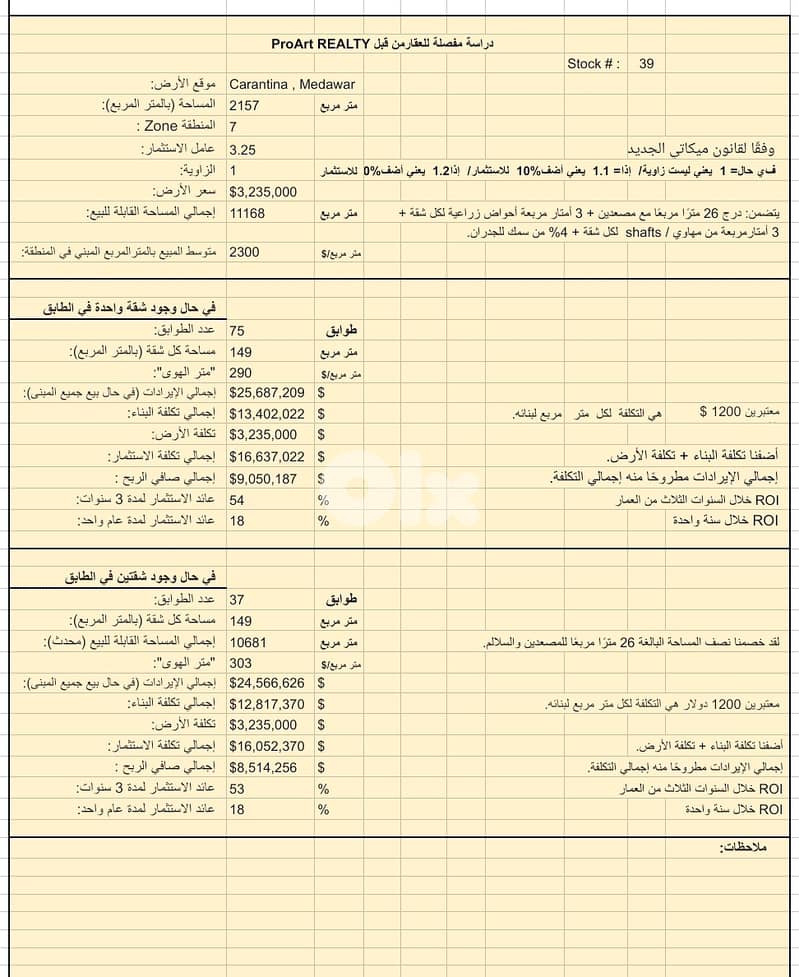 دراسة مفصلة للعقارمن قبل ProArt REALTY
Stock # : 39
موقع الأرض: Carantina , Medawar
المساحة (بالمتر المربع): 2157 متر مربع
المنطقة Zone : 7
عامل الاستثمار: 3.25 وفقًا لقانون ميكاتي الجديد
الزاوية: 1 في حال= 1 يعني ليست زاوية/ إذا= 1.1 يعني أضف%10 للاستثمار/ إذا1.2 يعني أضف%0 للاستثمار
سعر الأرض: $3,235,000
إجمالي المساحة القابلة للبيع: 11168 متر مربع يتضمن: درج 26 مترًا مربعًا مع مصعدين + 3 أمتار مربعة أحواض زراعية لكل شقة +
3 أمتارمربعة من مهاوي / shafts لكل شقة + 4% من سمك للجدران.
متوسط المبيع بالمترالمربع المبني في المنطقة: 2300 متر مربع/$
في حال وجود شقة واحدة في الطابق
عدد الطوابق: 75 طوابق
مساحة كل شقة (بالمتر المربع): 149 متر مربع
"متر الهوى": 290 متر مربع/$
إجمالي الإيرادات (في حال بيع جميع المبنى): $25,687,209 $
إجمالي تكلفة البناء: $13,402,022 $ معتبرين 1200 $ هي التكلفة لكل متر مربع لبنائه.
تكلفة الأرض: $3,235,000 $
إجمالي تكلفة الاستثمار: $16,637,022 $ أضفنا تكلفة البناء + تكلفة الأرض.
إجمالي صافي الربح : $9,050,187 $ إجمالي الإيرادات مطروحًا منه إجمالي التكلفة.
عائد الاستثمار لمدة 3 سنوات: 54 % ROI خلال السنوات الثلاث من العمار
عائد الاستثمار لمدة عام واحد: 18 % ROI خلال سنة واحدة
olx
في حال وجود شقتين في الطابق
عدد الطوابق: 37 طوابق
مساحة كل شقة (بالمتر المربع): 149 متر مربع
إجمالي المساحة القابلة للبيع (محدث): 10681 متر مربع لقد خصمنا نصف المساحة البالغة 26 مترًا مربعًا للمصعدين والسلالم.
"متر الهوى": 303 متر مربع/$
إجمالي الإيرادات (في حال بيع جميع المبنى): $24,566,626 $
إجمالي تكلفة البناء: $12,817,370 $ معتبرين 1200 دولار هي التكلفة لكل متر مربع لبنائه.
تكلفة الأرض: $3,235,000 $
إجمالي تكلفة الاستثمار: $16,052,370 $ أضفنا تكلفة البناء + تكلفة الأرض.
إجمالي صافي الربح : $8,514,256 $ إجمالي الإيرادات مطروحًا منه إجمالي التكلفة.
عائد الاستثمار لمدة 3 سنوات: 53 % ROI خلال السنوات الثلاث من العمار
عائد الاستثمار لمدة عام واحد: 18 % ROI خلال سنة واحدة
ملاحظات: